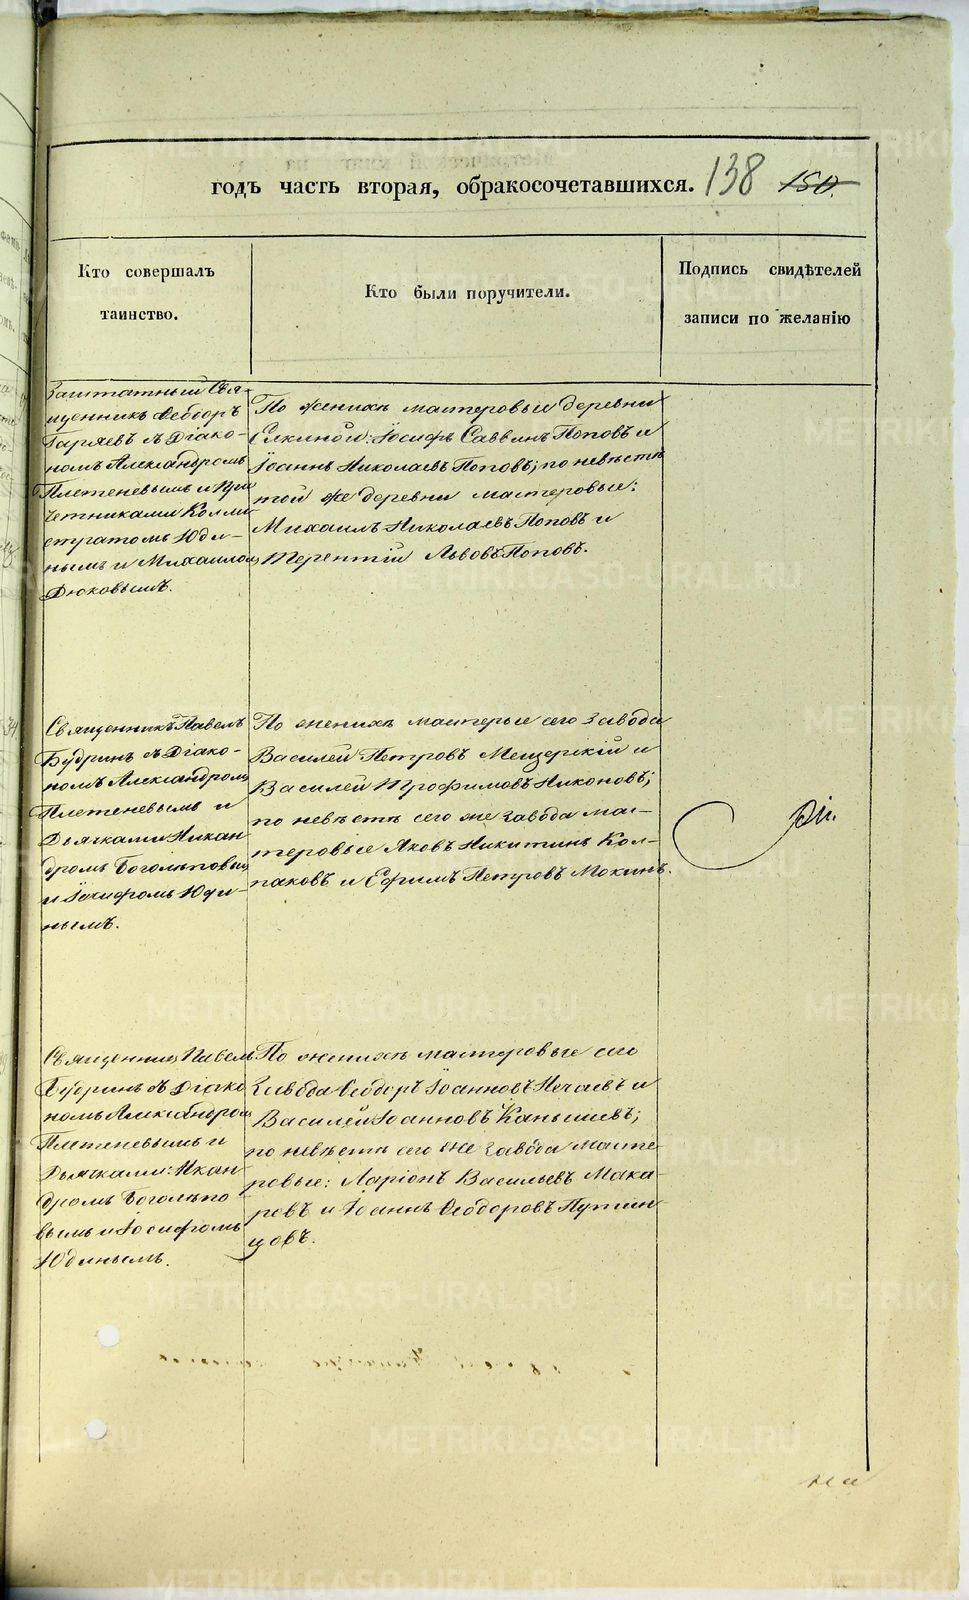 годъ часть вторая, обракосочетавшихся. 138 150.
Кто совершалъ
таинство.
Кто были поручители.
Подпись свидѣтелей
записи по желанію
Заштатный Свя-
щенникъ Ѳеодоръ
Гаряевъ съ Діако-
номъ Александромъ
Плетеневымъ и При
четниками Колли
стратомъ Юди-
нымъ и Михаиломъ
Дюковымъ.
По женихѣ мастеровые деревни
Елкиной: Іосифъ Саввинъ Поповъ и
Іоаннъ Николаевъ Поповъ; по невѣстѣ
той же деревни мастеровые:
Михаилъ Николаевъ Поповъ и
Терентій Львовъ Поповъ.
Священникъ Павелъ
Будринъ съ Діако-
номъ Александромъ
Плетеневымъ и
Дьячками Никан
дромъ Боголѣповымъ
и Іосифомъ Юди-
нымъ.
По женихѣ мастерые сего завода
Василей Петровъ Мещерскій и
Василей Трофимовъ Никоновъ;
по невѣстѣ сего же завода мас-
теровые Яковъ Никитинъ Кол-
паковъ и Ефимъ Петровъ Мокинъ.
Священникъ Павелъ
Будринъ съ Діако
номъ Александромъ
Плетеневымъ и
Дьячками: Никан
дромъ Боголѣпо
вымъ и Іосифомъ
Юдинымъ.
По женихѣ мастеровые сего
Завода Ѳеодоръ Іоанновъ Нечаевъ и
Василей Іоанновъ Канышевъ;
по невѣстѣ сего же завода масте-
ровые: Ларіонъ Васильевъ Мака
ровъ и Іоаннъ Ѳеодоровъ Путин
цовъ.
METRIKI.GASO-URAL.RU